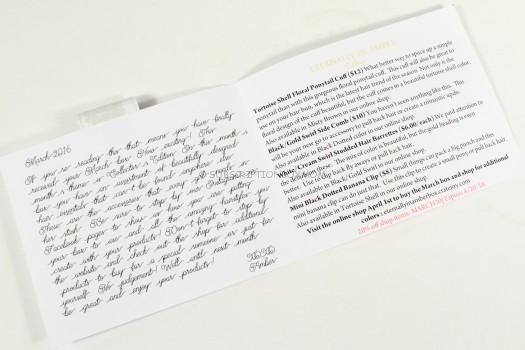 March 2016
If you're reading this that means you have finally
received your March box! How exciting! This month's
theme is Collector's Edition. In this month's
box you have an assortment of beautifully designed
hair essentials that can't be found anywhere else.
These are the accessories that you are
her stash. Be sure to stop by our Instagram or
Facebook page to share how you are putting
your hair up and all the amazing hairdos you
create with your products! Don't forget to stop by
the website to check out the shop for additional
products to buy for a special someone or just for
yourself. No judgement! Well until next month
be great and enjoy your products!
XOXO
Amber
ETERNALLY IN AMBER
Tortoise Shell Floral Ponytail Cuff ($12) What better way to spice up a simple
ponytail than with this gorgeous floral ponytail cuff. This cuff will also be great to
use on your hair bun, which is the latest hair trend of the season. Not only is the
floral design of the cuff beautiful, but the cuff comes in a beautiful tortoise shell color.
Also available in Misty Brown in our online shop.
Black/Gold Swirl Side Comb ($10) You haven't seen anything like this. This
will be your new go to accessory to pull back hair or create a romantic style.
Also available in Black Dotted color in our online shop.
White/Cream Swirl Studded Hair Barrettes ($6.00/each) We paid attention to
the details on these. The mix of color is beautiful, but the gold heading is even
better. Use to clip back fly aways or pull back hair.
Also available in Black/Gold Swirl in our online shop.
Mini Black Dotted Banana Clip ($8) Small things can pack a big punch and this
mini banana clip can do just that. Use this clip to create a small pony or pull back hair
Also available in Tortoise Shell in our online shop.
Visit the online shop April 1st to buy the March box and shop for additional
colors : eternallyinamberbox.cratejoy.com
20% off shop items: MARCH20! Expires 4/20/16